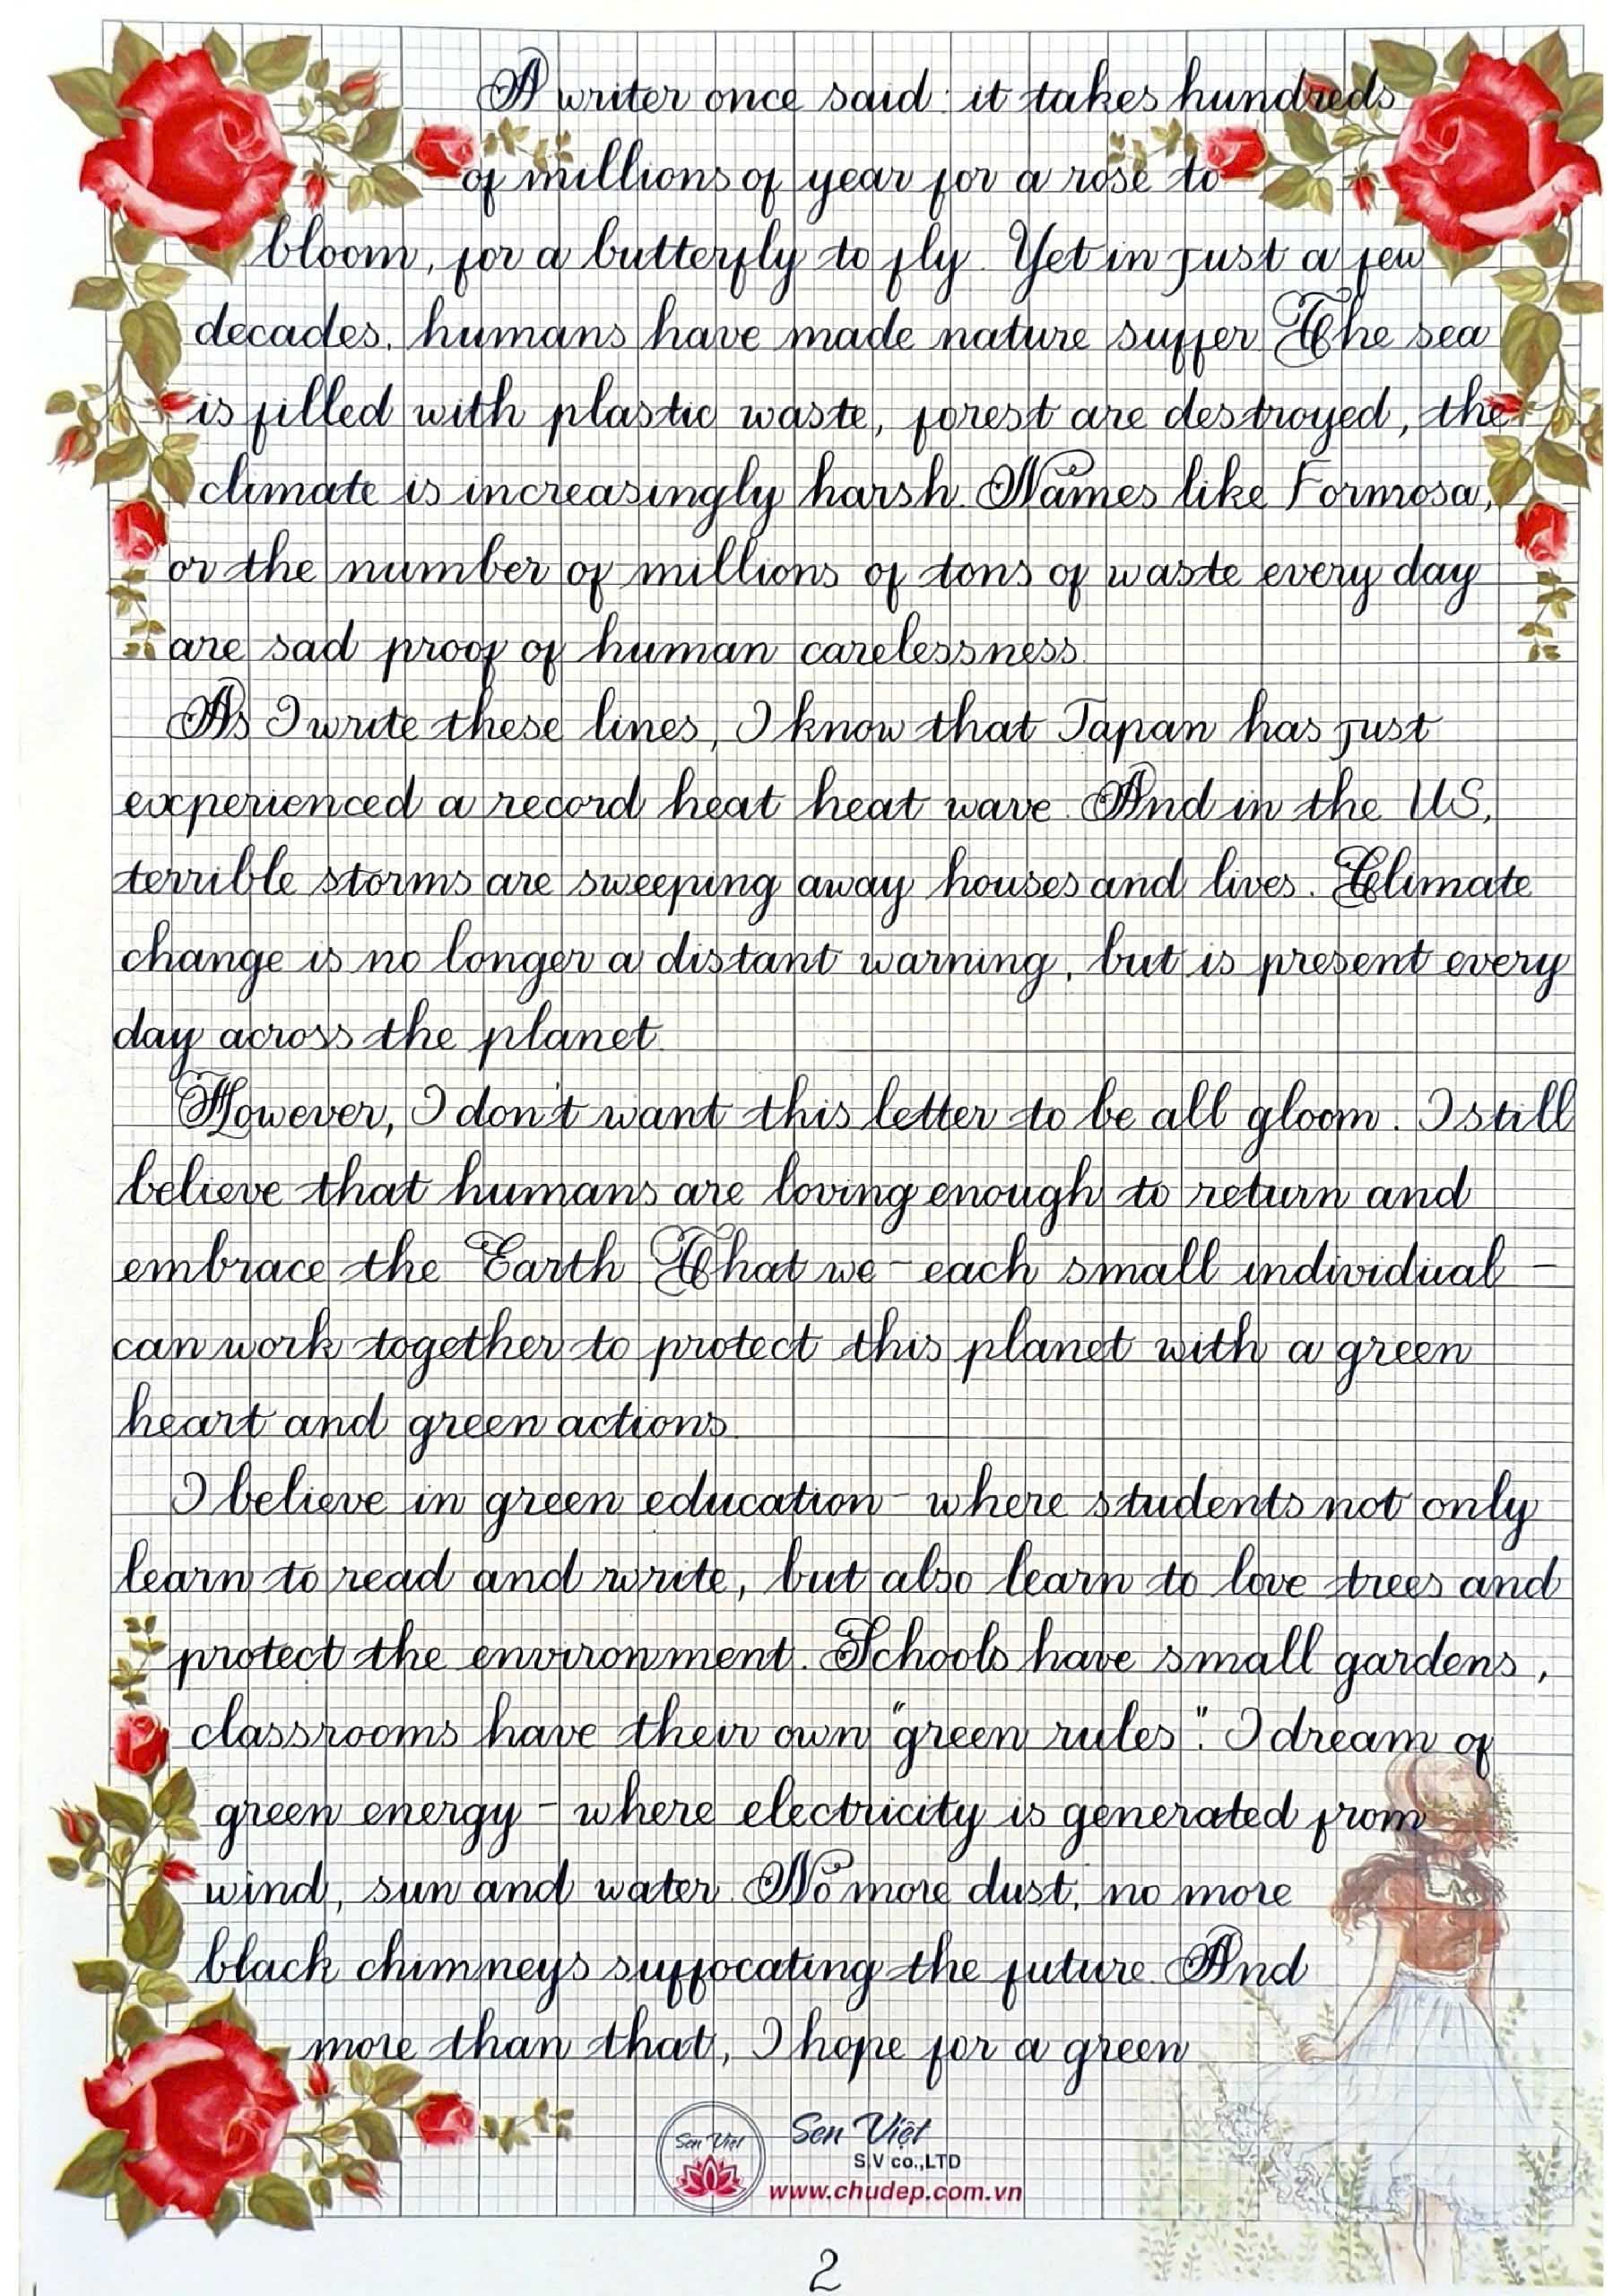 A writer once said: it takes hundreds
of millions of year for a rose to
bloom, for a butterfly to fly. Yet in just a few
decades, humans have made nature suffer. The sea
is filled with plastic waste, forest are destroyed, the
climate is increasingly harsh. Names like Formosa,
or the number of millions of tons of waste every day
are sad proof of human carelessness.
As I write these lines, I know that Japan has just
experienced a record heat heat wave. And in the US,
terrible storms are sweeping away houses and lives. Climate
change is no longer a distant warning, but is present every
day across the planet.
However, I don't want this letter to be all gloom. I still
believe that humans are loving enough to return and
embrace the Earth. That we - each small individual -
can work together to protect this planet with a green
heart and green actions.
I believe in green education - where students not only
learn to read and write, but also learn to love trees and
protect the environment. Schools have small gardens,
classrooms have their own "green rules". I dream of
green energy - where electricity is generated from
wind, sun and water. No more dust, no more
black chimneys suffocating the future. And
more than that, I hope for a green
Sen Việt
Sen Việt
S.V co.,LTD
www.chudep.com.vn
2